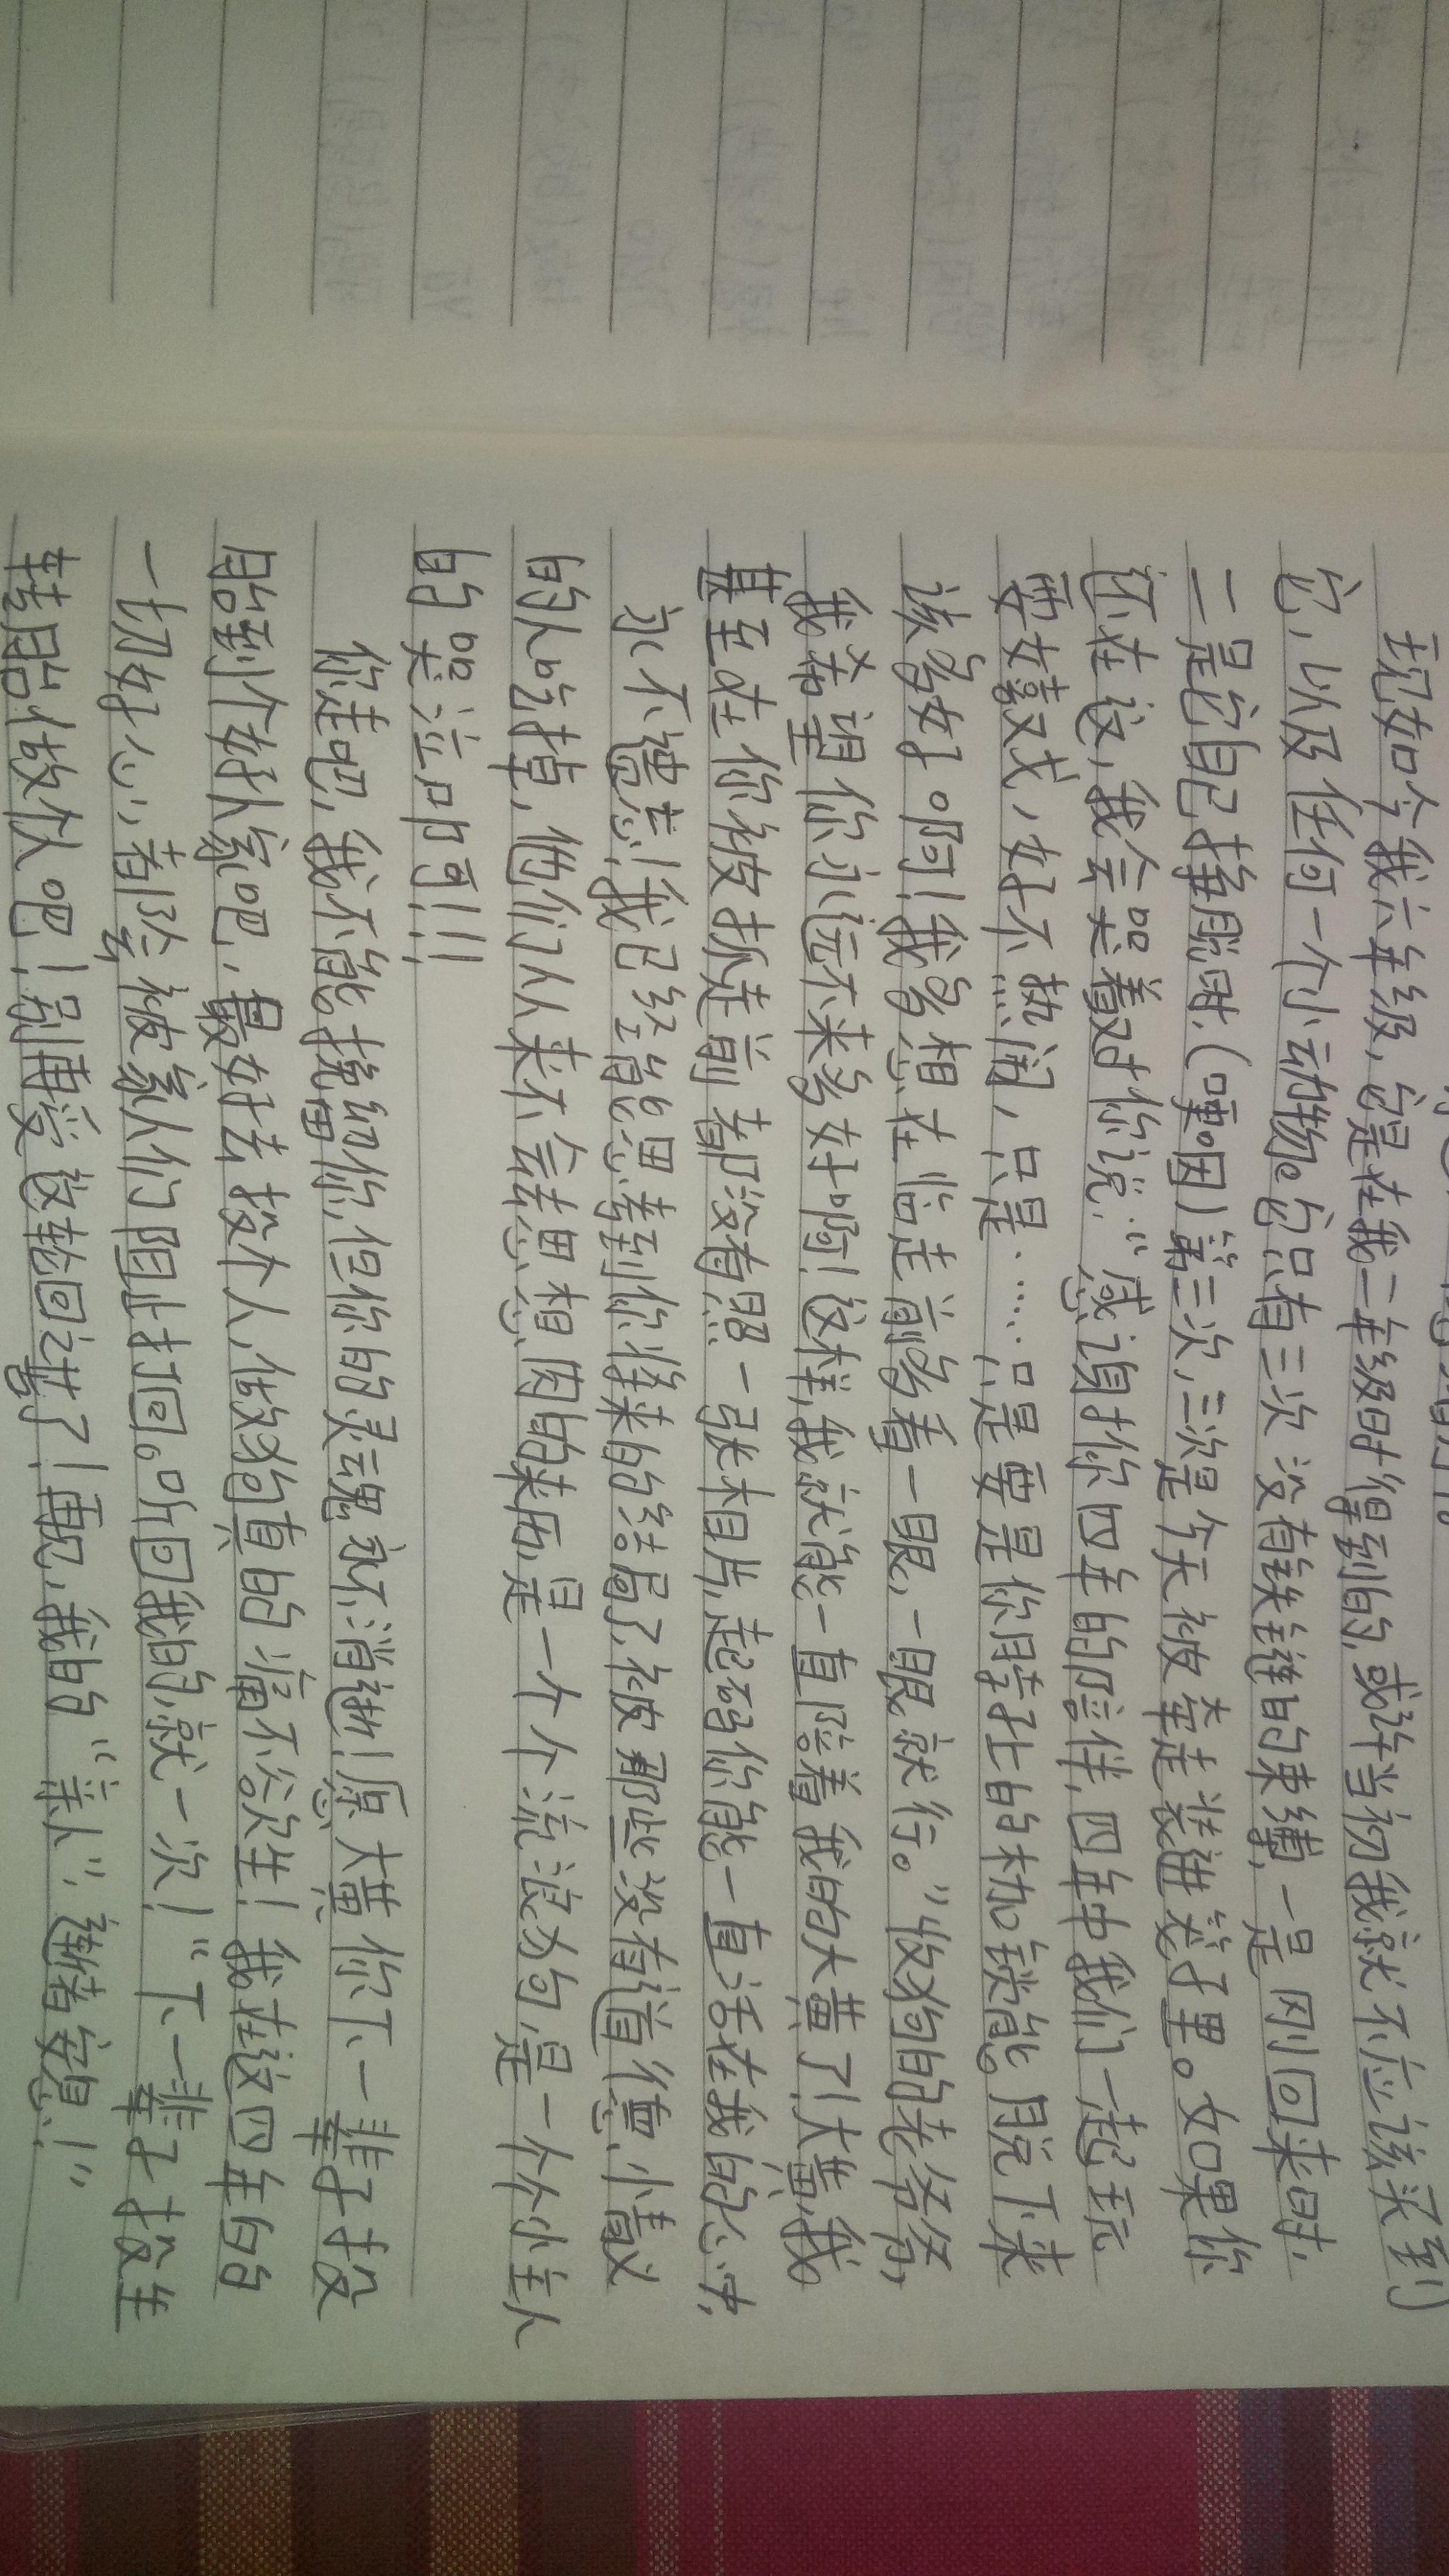 现如今我六年级,它是在我二年级时得到的,或许当初我就不应该买到
它,以及任何一个小动物。它只有三次没有铁链的束缚,一是刚回来时,
二是它自己挣脱时,(噗因)第三次,三次是今天被牵走装进笼子里。如果你
还在这,我会哭着对你说:“感谢你四年的陪伴,四年中我们一起玩
耍女喜戏,好不热闹,只是……只是要是你脖子上的枷锁能脱下来
该多好啊!我多想在临走前多看一眼,一眼就行。”收狗的老爷爷,
我希望你永远不来多好啊!这样,我就能一直陪着我的大黄了!大黄,我
甚至在你被抓走前都没有照一张相片,起码你能一直活在我的心中,
永不褪忘!我已经能思考到你将来的结局了,被那些没有道德、小義
的人吃掉,他们从来不会去思想肉的来历,是一个个流浪狗,是一个个小主人
的哭泣叩可!!!
你走吧,我不能挽留你,但你的灵魂永不消逝!愿大黄你下一辈子投
胎到个好人家吧,最好去投个人,做狗真的痛不欲生!我在这四年的
一切好心,都会被家人们阻止打回。只回我的就一次!“下一辈子投生
转胎做人吧!别再受这轮回之苦了!再见,我的“亲人”,逝者安息!”